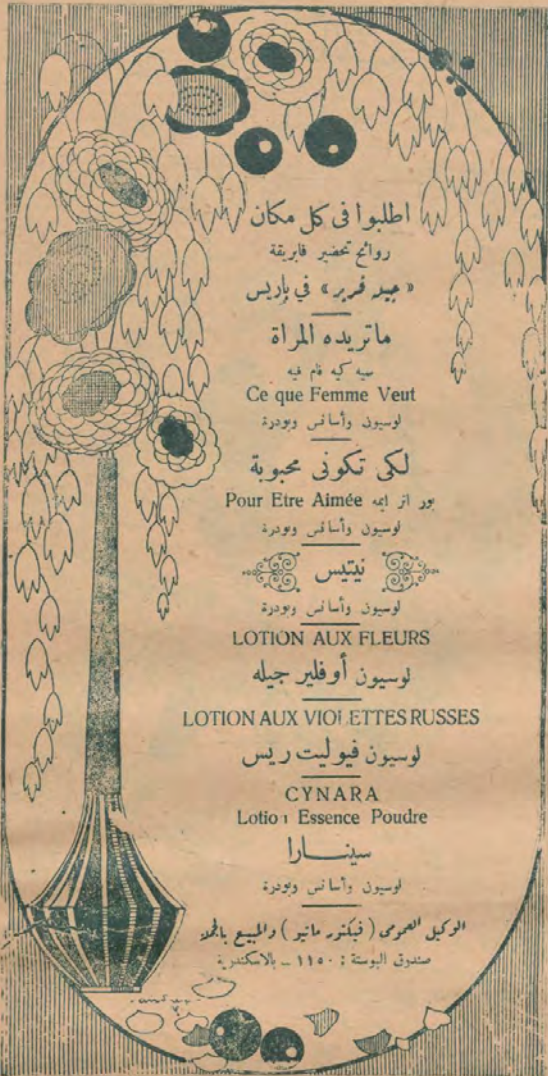 اطلبوا فى كل مكان
روائح تحضير فابريقة
« جيد فرير » في باريس
ماتريده المراة
سيه كيه فام فيه
Ce que Femme Veut
لوسيون وأسانس وبودرة
لكى تكونى محبوبة
Pour Etre Aimée بور اتر ايمه
لوسيون وأسانس وبودرة
نيتيس
لوسيون وأسانس وبودرة
LOTION AUX FLEURS
لوسيون أوفلير جيله
LOTION AUX VIOLETTES RUSSES
لوسيون فيوليت ريس
CYNARA
Lotion Essence Poudre
سينارا
لوسيون وأسانس وبودرة
الوكيل العمومى ( فيكتور مانيو ) والمبيع بالجملة
صندوق البوستة : ١١٥٠ ـ بالاسكندرية